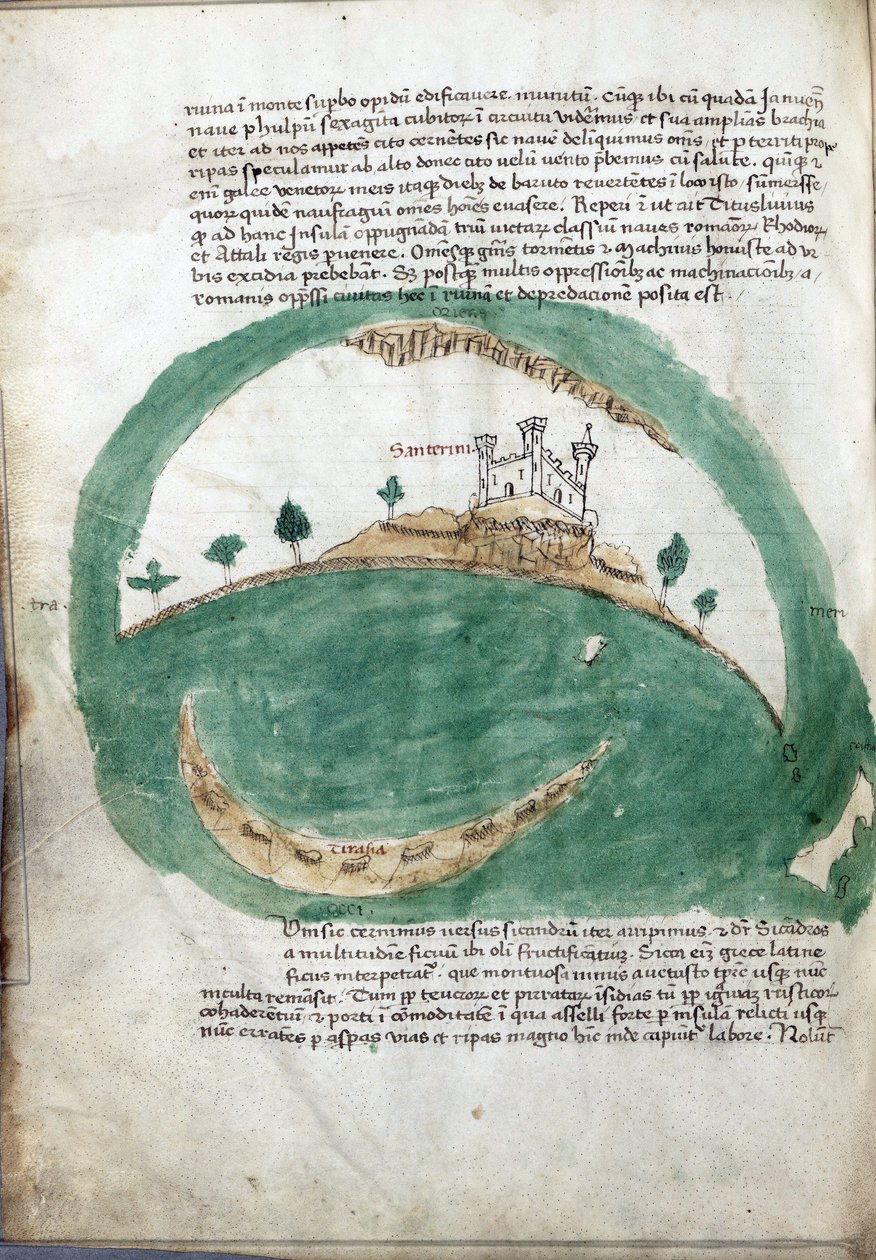 ruina ī monte supbo opidū edificavere. munitū. Cūqȝ ibi cū quadā Januēn̄
nave p hulpū sexagīta cubitoꝝ ī circuitu vidērimus et sua amplias brachia
et iter ad nos appetēs cito cernētes sic navē deliquimus om̄s, et p territi prope
ripas speculamur ab alto donec cito velū vento p̄bemus cū salute. quīqȝ ⁊
enī galee venetoꝝ meis itaqȝ diebȝ de baruto revertētes ī loco isto, sūmersse
quoꝝ quidē naufragiū om̄es hoīes evasere. Reperi ⁊ ut ait Titus livius
ꝙ ad hanc Insulā oppugnādā triū victaꝝ classiū naves romāoꝝ Rhodioꝝ
et Attali regis pvenere. Om̄esqȝ gn̄is tormētis ⁊ machinis honuste ad ur
bis excidia prebebāt. Sȝ postqȝ multis oppressiōibȝ ac machinaciōibȝ a,
romanis opp̄ssi civitas hec ī ruinā et depredacionē posita est.
oriens
Santerini.
tra.
meri
Tirasia
occi.
Vn̄ sic cernimus versus sicandrū iter arripimus. ⁊ dr̄ Sicādros
a multitudīe ficuum ibi oli fructificātiuȝ. Sicoi eīȝ grece latine
ficus interpretat̄. que montuosa nimis a vetusto tp̄re usqȝ nūc
inculta remāsit. Tum pp teucroꝝ et pirrataꝝ īsidias tū pp rusticoꝝ
cohaderentiū, ⁊ porti ī cōmoditatē ī qua asselli forte p insulā relicti usqȝ
nūc errātes p aspas vias et ripas magno hīc inde capiūt̄ labore. Nolūt